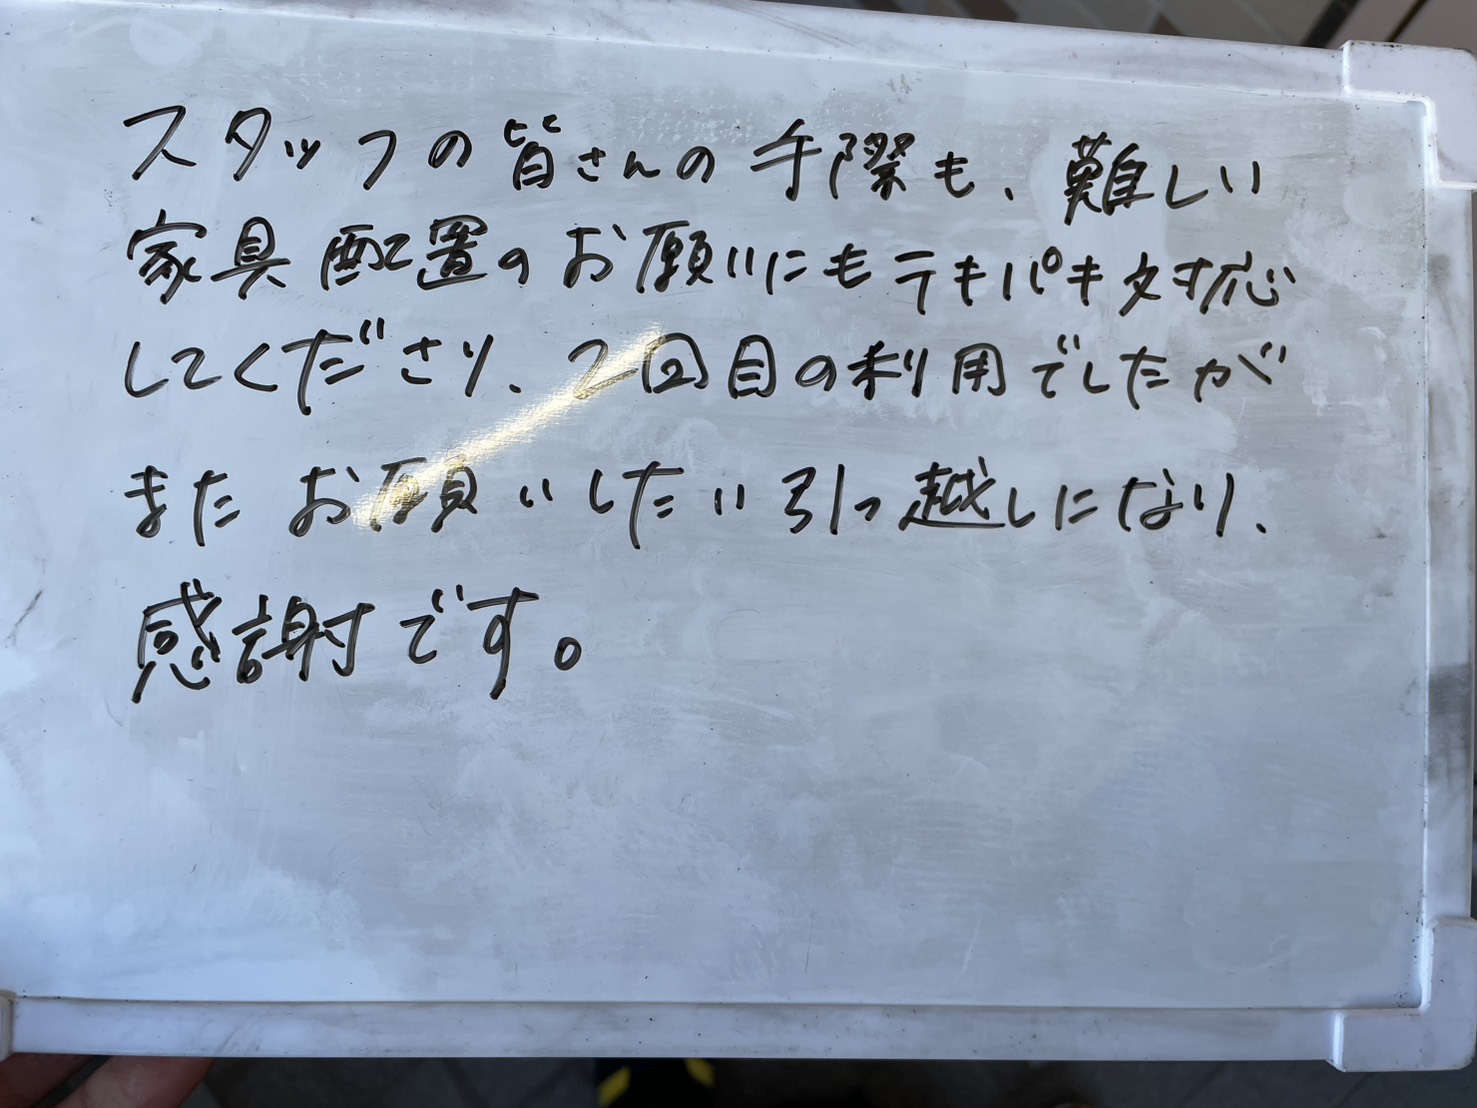 スタッフの皆さんの手際も、難しい
家具配置のお願いにもテキパキ対応
してくださり、2回目の利用でしたが
またお願いしたい引っ越しになり、
感謝です。